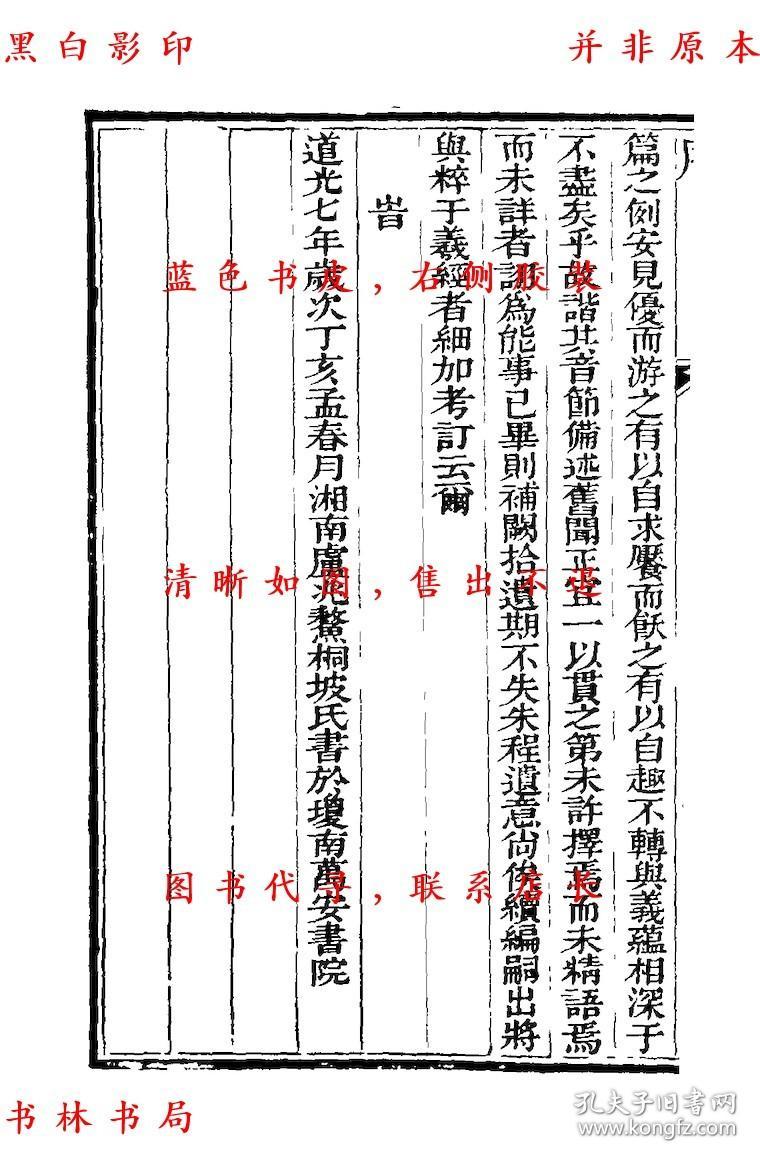 黑白影印
并非原本
篇之例安見優而游之有以自求饜而飫之有以自趣不轉與義蘊相深于
不盡矣乎故諧其音節備述舊聞正宜一以貫之第未許擇焉而未精語焉
而未詳者謂為能事已畢則補闕拾遺期不失朱程遺意尚俟續編嗣出將
與粹于羲經者細加考訂云爾
旹
道光七年歲次丁亥孟春月湘南盧兆鰲桐坡氏書於瓊南萬安書院
蓝色书皮，右侧胶装
清晰如图，售出不退
图书代寻，联系店长
书林书局
孔夫子旧书网
www.kongfz.com